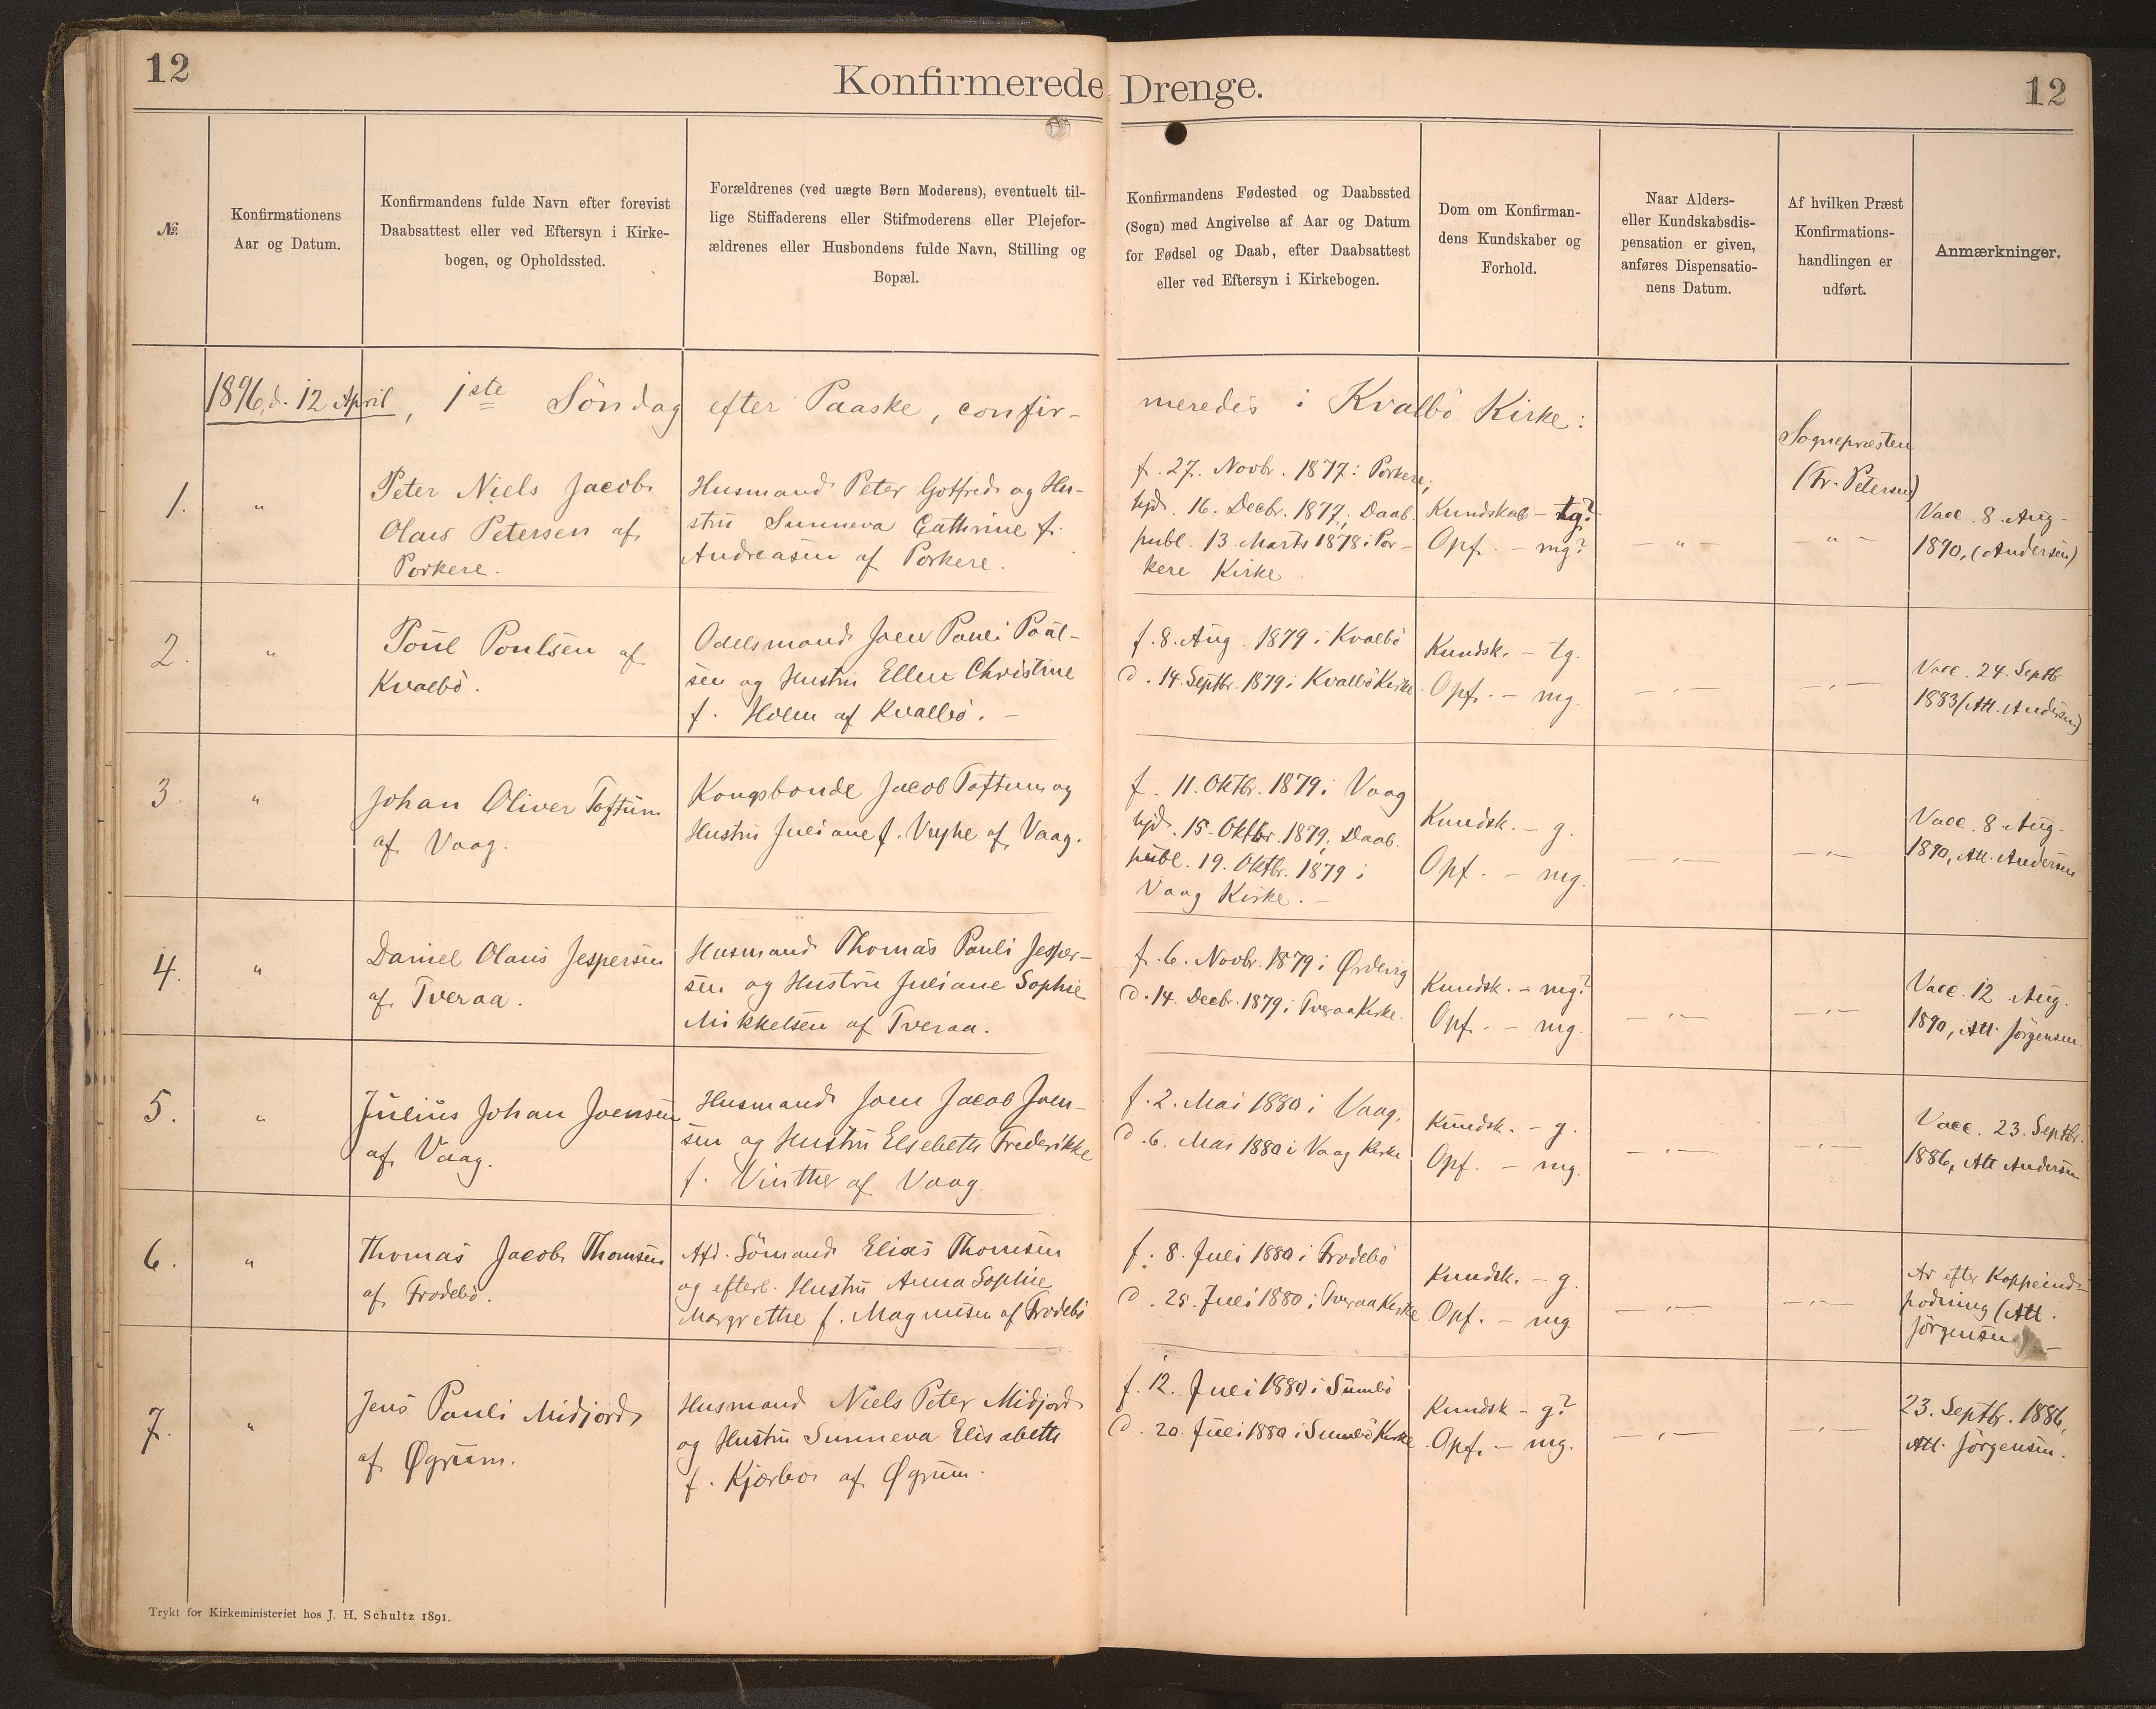 12
Konfirmerede Drenge.
12
№.
Konfirmationens
Aar og Datum.
Konfirmandens fulde Navn efter forevist
Daabsattest eller ved Eftersyn i Kirke-
bogen, og Opholdssted.
Forældrenes (ved uægte Børn Moderens), eventuelt til-
lige Stiffaderens eller Stifmoderens eller Plejefor-
ældrenes eller Husbondens fulde Navn, Stilling og
Bopæl.
Konfirmandens Fødested og Daabssted
(Sogn) med Angivelse af Aar og Datum
for Fødsel og Daab, efter Daabsattest
eller ved Eftersyn i Kirkebogen.
Dom om Konfirman-
dens Kundskaber og
Forhold.
Naar Alders-
eller Kundskabsdis-
pensation er given,
anføres Dispensatio-
nens Datum.
Af hvilken Præst
Konfirmations-
handlingen er
udført.
Anmærkninger.
1896, d. 12 April, 1ste Söndag efter Paaske, confir-
meredes i Kvalbö Kirke:
Sognepræsten
(Fr. Petersen)
1.
"
Peter Niels Jacob
Olaus Petersen af
Porkere.
Husmand Peter Gotfred og Hu-
stru Sunneva Cathrine f.
Andreasen af Porkere.
f. 27. Novbr. 1877 i Porkere;
hjd. 16. Decbr. 1877; Daab.
publ. 13. Marts 1878 i Por-
kere Kirke.
Kundskab - tg?
Opf. - mg?
- " -
- " -
Vacc. 8. Aug.
1890, (Andersen)
2.
"
Poul Poulsen af
Kvalbö.
Odelsmand Joen Pauli Poul-
sen og Hustru Ellen Christine
f. Holm af Kvalbö. -
f. 8. Aug. 1879 i Kvalbö
d. 14. Septbr. 1879 i Kvalbö Kirke.
Kundsk. - tg.
Opf. - mg.
- " -
- " -
Vacc. 24. Septb
1883 (Att. Andersen)
3.
"
Johan Oliver Toftum
af Vaag.
Kongsbonde Jacob Toftum og
Hustru Juliane f. Vryhe af Vaag.
f. 11. Oktbr. 1879 i Vaag
hjd. 15. Oktbr. 1879; Daab.
publ. 19. Oktbr. 1879 i
Vaag Kirke. -
Kundsk. - g.
Opf. - mg.
- " -
- " -
Vacc. 8. Aug.
1890, Att. Andersen
4.
"
Daniel Olaus Jespersen
af Tveraa.
Husmand Thomas Pauli Jesper-
sen og Hustru Juliane Sophie
Mikkelsen af Tveraa.
f. 6. Novbr. 1879 i Ørdevig
d. 14. Decbr. 1879 i Tveraa Kirke.
Kundsk. - mg?
Opf. - mg.
- " -
- " -
Vacc. 12 Aug.
1890, Att. Jörgensen.
5.
"
Julius Johan Joensen
af Vaag.
Husmand Joen Jacob Joen-
sen og Hustru Elsebeth Frederikke
f. Vinther af Vaag.
f. 2. Mai 1880 i Vaag.
d. 6. Mai 1880 i Vaag Kirke
Kundsk. - g.
Opf. - mg.
- " -
- " -
Vacc. 23. Septbr.
1886, Att Andersen
6.
"
Thomas Jacob Thomsen
af Frodebö.
Afd. Sömand Elias Thomsen
og efterl. Hustru Anna Sophie
Margrethe f. Magnusen af Frodebö
f. 8. Juli 1880 i Frodebö
d. 25. Juli 1880 i Tveraa Kirke
Kundsk. - g.
Opf. - mg.
- " -
- " -
Ar efter Koppeind-
podning (Att.
Jörgensen) -
7.
"
Jens Pauli Midjord
af Øgrum.
Husmand Niels Peter Midjord
og Hustru Sunneva Elisabeth
f. Kjærbo af Øgrum.
f. 12. Juli 1880 i Sumbö
d. 20. Juli 1880 i Sumbö Kirke
Kundsk - g?
Opf. - mg.
- " -
- " -
23. Septbr. 1886,
Att. Jörgensen.
Trykt for Kirkeministeriet hos J. H. Schultz 1891.